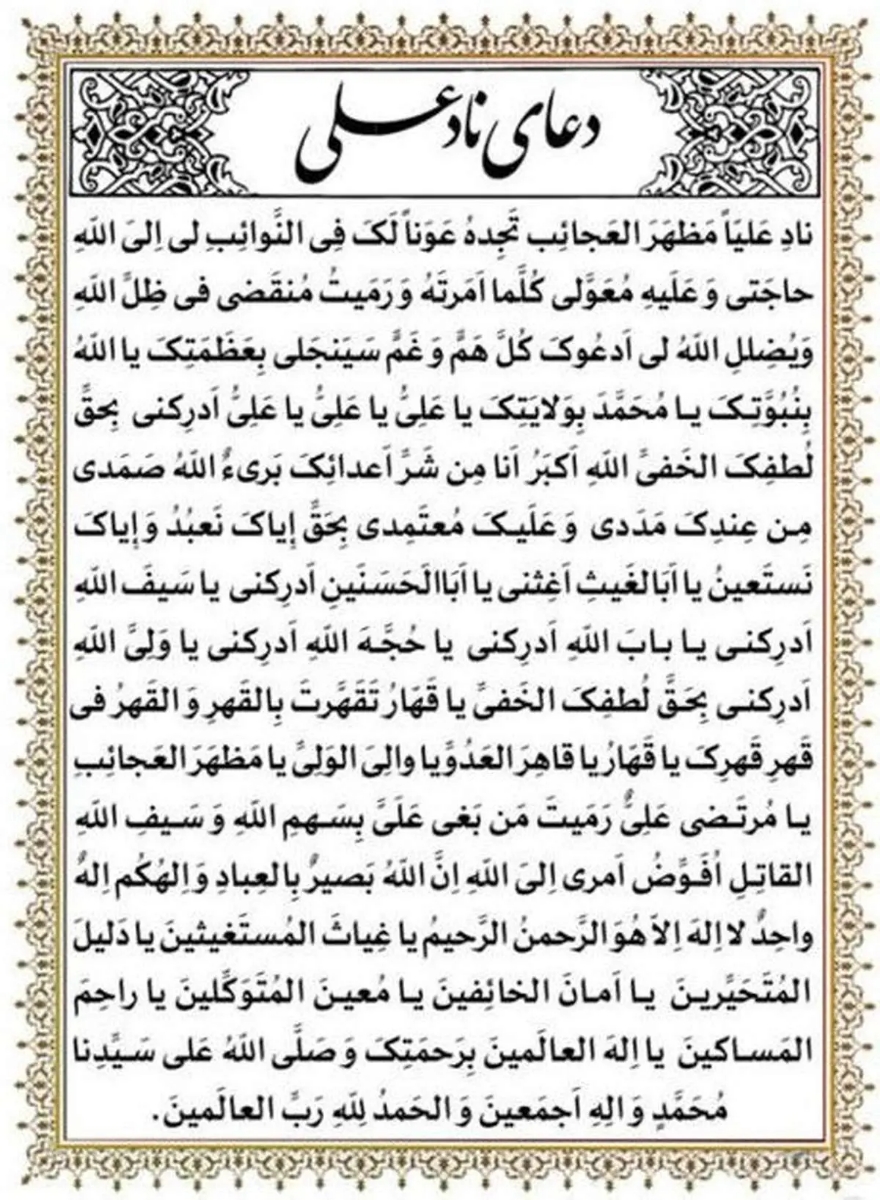 دعای ناد علی
نادِ عَلیَاً مَظهَرَ العَجائِب تَجِدهُ عَوَناً لَکَ فِی النَّوائِبِ لی اِلیَ اللّهِ
حاجَتی وَ عَلَیهِ مُعَوَّلی کُلَّما اَمَرتَهُ وَ رَمَیتُ مُنقَضی فی ظِلَّ اللّهِ
وَیُضِللِ اللّهُ لی اَدعُوکَ کُلَّ هَمًّ وَ غَمًّ سَیَنجَلی بِعَظَمَتِکَ یا اللّهُ
بِنُبُوَّتِکَ یا مُحَمَّدَ بِوَلایَتِکَ یا عَلِیُّ یا عَلِیُّ یا عَلِیُّ اَدرِکنی بِحَقَّ
لُطفِکَ الخَفیَّ اللّهِ اَکبَرُ اَنا مِن شَرَّ اَعدائِکَ بَریءٌ اللّهُ صَمَدی
مِن عِندِکَ مَدَدی وَ عَلَیکَ مُعتَمِدی بِحَقَّ إیاکَ نَعبُدُ وَ إیاکَ
نَستَعینُ یا اَبَالغَیثِ اَغِثنی یا اَبَاالَحَسَنَینِ اَدرِکنی یا سَیفَ اللّهِ
اَدرِکنی یا بابَ اللّهِ اَدرِکنی یا حُجَّهَ اللّهِ اَدرِکنی یا وَلِیَّ اللّهِ
اَدرِکنی بِحَقَّ لُطفِکَ الخَفیَّ یا قَهّارُ تَقَهَّرتَ بِالقَهرِ وَ القَهرُ فی
قَهرِ قَهرِکَ یا قَهّارُ یا قاهِرَ العَدُوَّیا والِیَ الوَلِیَّ یا مَظهَرَ العَجائِبِ
یا مُرتَضی عَلِیُّ رَمَیتَ مَن بَغی عَلَیَّ بِسَهمِ اللّهِ وَ سَیفِ اللّهِ
القاتِلِ اُفَوَّضُ اَمری اِلیَ اللّهِ اِنَّ اللّهَ بَصیرٌ بِالعِبادِ وَ اِلهُکُم اِلهٌ
واحِدٌ لا اِلهَ اِلاّ هُوَ الرَّحمنُ الرَّحیمُ یا غِیاثَ المُستَغیثینَ یا دَلیلَ
المُتَحَیَّرینَ یا اَمانَ الخائِفینَ یا مُعینَ المُتَوَکَّلینَ یا راحِمَ
المَساکینَ یا اِلهَ العالَمینَ بِرَحمَتِکَ وَ صَلَّی اللّهُ عَلی سَیَّدِنا
مُحَمَّدٍ وَ الِهِ اَجمَعینَ وَ الحَمدُ لِلّهِ رَبَّ العالَمینَ.